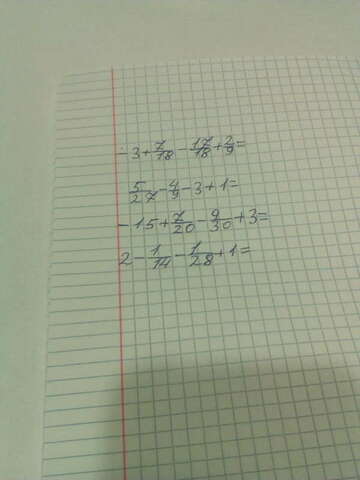 -3+7/18-17/18+2/9=
5/27-4/9-3+1=
-1,5+7/20-9/30+3=
2-1/14-1/28+1=